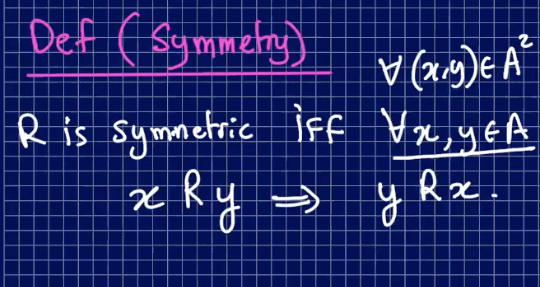 Def (Symmetry)
∀ (x,y) ∈ A²
R is symmetric iff ∀x, y ∈ A
x R y ⟹ y R x.